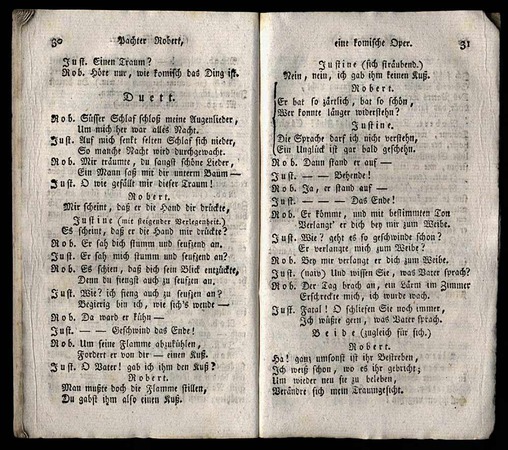 30 Pachter Robert,
Just. Einen Traum?
Rob. Höre nur, wie komisch das Ding ist.
Duett.
Rob. Süsser Schlaf schloß meine Augenlieder,
Um mich her war alles Nacht.
Just. Auf mich senkt selten Schlaf sich nieder,
So manche Nacht wird durchgewacht.
Rob. Mir träumte, du sangst schöne Lieder,
Ein Mann saß mit dir unterm Baum —
Just. O wie gefällt mir dieser Traum!
Robert.
Mir scheint, daß er die Hand dir drückte,
Justine (mit steigender Verlegenheit.)
Es scheint, daß er die Hand mir drückte?
Rob. Er sah dich stumm und seufzend an.
Just. Er sah mich stumm und seufzend an?
Rob. Es schien, daß dich sein Blick entzückte,
Denn du fiengst auch zu seufzen an.
Just. Wie? ich fieng auch zu seufzen an?
Begierig bin ich, wie sich's wende —
Rob. Da ward er kühn —
Just. — — Geschwind das Ende!
Rob. Um seine Flamme abzukühlen,
Fodert er von dir — einen Kuß.
Just. O Vater! gab ich ihm den Kuß?
Robert.
Man mußte doch die Flamme stillen,
Du gabst ihm also einen Kuß.
eine komische Oper. 31
Justine (sich sträubend.)
Nein, nein, ich gab ihm keinen Kuß.
Robert.
Er bat so zärtlich, bat so schön,
Wer konnte länger widerstehn?
Justine.
Die Sprache darf ich nicht verstehn,
Ein Unglück ist gar bald geschehn.
Rob. Dann stand er auf —
Just. — — Behende!
Rob. Ja, er stand auf —
Just. — — Das Ende!
Rob. Er kömmt, und mit bestimmten Ton
Verlangt' er dich bey mir zum Weibe.
Just. Wie? geht es so geschwinde schon?
Er verlangte mich zum Weibe?
Rob. Bey mir verlangt er dich zum Weibe.
Just. (naiv) Und wissen Sie, was Vater sprach?
Rob. Der Tag brach an, ein Lärm im Zimmer
Erschreckte mich, ich wurde wach.
Just. Fatal! O schliefen Sie noch immer,
Ich wüßte gern, was Vater sprach.
Beide (zugleich für sich.)
Robert.
Ha! ganz umsonst ist ihr Bestreben,
Ich weiß schon, wo es ihr gebricht;
Um wieder neu sie zu beleben,
Verändre sich mein Traumgesicht.